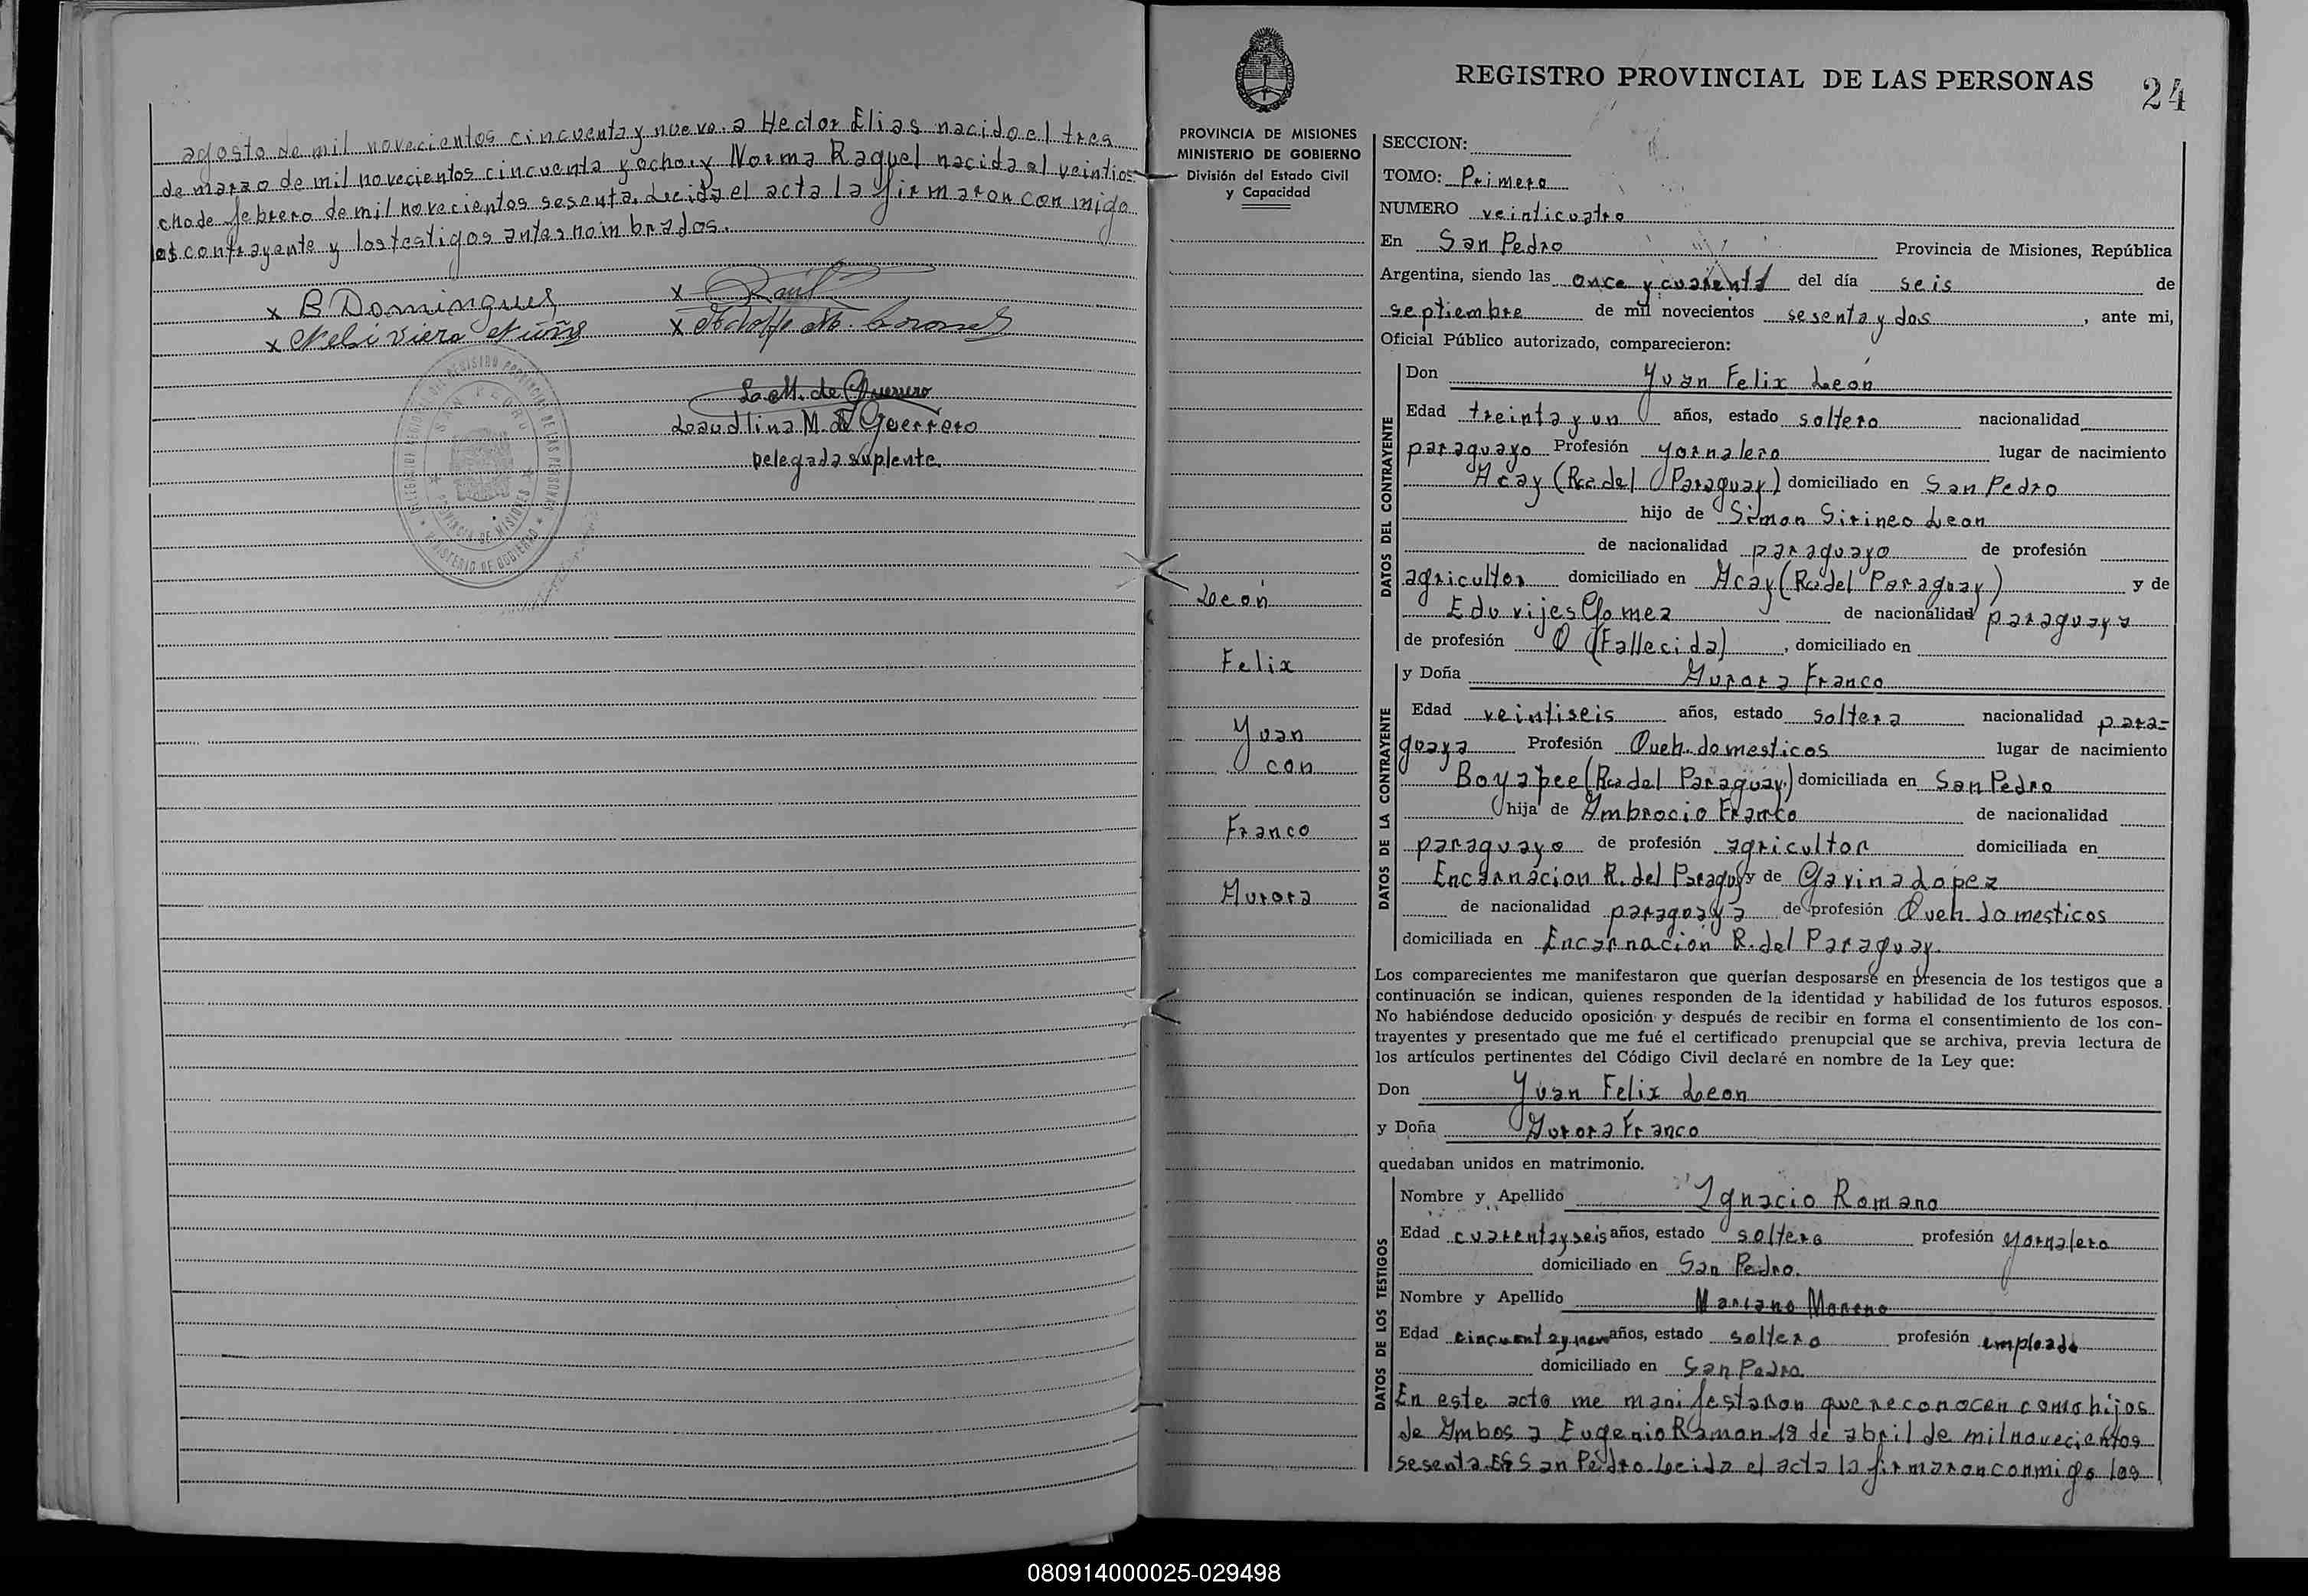 agosto de mil novecientos cincuenta y nueve. a Hector Elias nacido el tres
de marzo de mil novecientos cincuenta y ocho. y Norma Raquel nacida el veintio-
cho de febrero de mil novecientos sesenta. Leida el acta la firmaron con migo
los contrayente y los testigos antes nombrados.
x B Domingues x Raúl
x Nelsi Viera Núñs x
L. M. de Guerrero
Laudlina M. de Guerrero
Delegada suplente.
SAN PEDRO
PROVINCIA DE MISIONES
MINISTERIO DE GOBIERNO
REGISTRO PROVINCIAL DE LAS PERSONAS 24
PROVINCIA DE MISIONES
MINISTERIO DE GOBIERNO
División del Estado Civil
y Capacidad
León
Felix
Yuan
con
Franco
Aurora
SECCION:
TOMO: Primero
NUMERO veinticuatro
En San Pedro Provincia de Misiones, República
Argentina, siendo las once y cuarenta del día seis de
septiembre de mil novecientos sesenta y dos, ante mi,
Oficial Público autorizado, comparecieron:
DATOS DEL CONTRAYENTE
Don Yuan Felix León
Edad treinta y un años, estado soltero nacionalidad
paraguayo Profesión yornalero lugar de nacimiento
Acay (Rca del Paraguay) domiciliado en San Pedro
hijo de Simon Sirineo Leon
de nacionalidad paraguayo de profesión
agricultor domiciliado en Acay (Rca del Paraguay) y de
Eduvijes Gomez de nacionalidad paraguaya
de profesión O (Fallecida), domiciliado en
DATOS DE LA CONTRAYENTE
y Doña Aurora Franco
Edad veintiseis años, estado soltera nacionalidad para-
guaya Profesión Queh. domesticos lugar de nacimiento
Boyapee (Rca del Paraguay.) domiciliada en San Pedro
hija de Ambrocio Franco de nacionalidad
paraguayo de profesión agricultor domiciliada en
Encarnacion R. del Paraguay y de Gavina Lopez
de nacionalidad paraguaya de profesión Queh. domesticos
domiciliada en Encarnación R. del Paraguay.
Los comparecientes me manifestaron que querían desposarse en presencia de los testigos que a
continuación se indican, quienes responden de la identidad y habilidad de los futuros esposos.
No habiéndose deducido oposición y después de recibir en forma el consentimiento de los con-
trayentes y presentado que me fué el certificado prenupcial que se archiva, previa lectura de
los artículos pertinentes del Código Civil declaré en nombre de la Ley que:
Don Yuan Felix Leon
y Doña Aurora Franco
quedaban unidos en matrimonio.
DATOS DE LOS TESTIGOS
Nombre y Apellido Ignacio Romano
Edad cuarenta y seis años, estado soltero profesión yornalero
domiciliado en San Pedro.
Nombre y Apellido Mariano Moreno
Edad cincuenta y nueve años, estado soltero profesión empleado
domiciliado en San Pedro.
En este acto me manifestaron que reconocen como hijos
de Ambos a Eugenio Ramon 18 de abril de mil novecientos
sesenta En San Pedro. Leida el acta la firmaron conmigo los
080914000025-029498